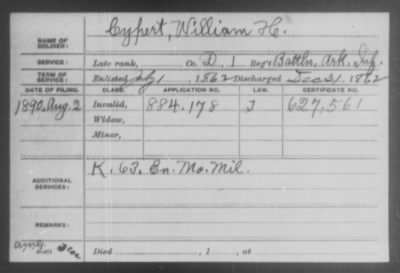 NAME OF SOLDIER: Cypert, William H.
SERVICE: Late rank, Co. D, 1 Reg't Battln, Ark. Inf.
TERM OF SERVICE: Enlisted July 1, 1862 Discharged Dec 31, 1862
DATE OF FILING. CLASS. APPLICATION NO. LAW. CERTIFICATE NO.
1890, Aug. 2 Invalid, 884.178 J 627,561
Widow,
Minor,
ADDITIONAL SERVICES: K. 63. En. Mo. Mil.
REMARKS:
Died , 1 , at